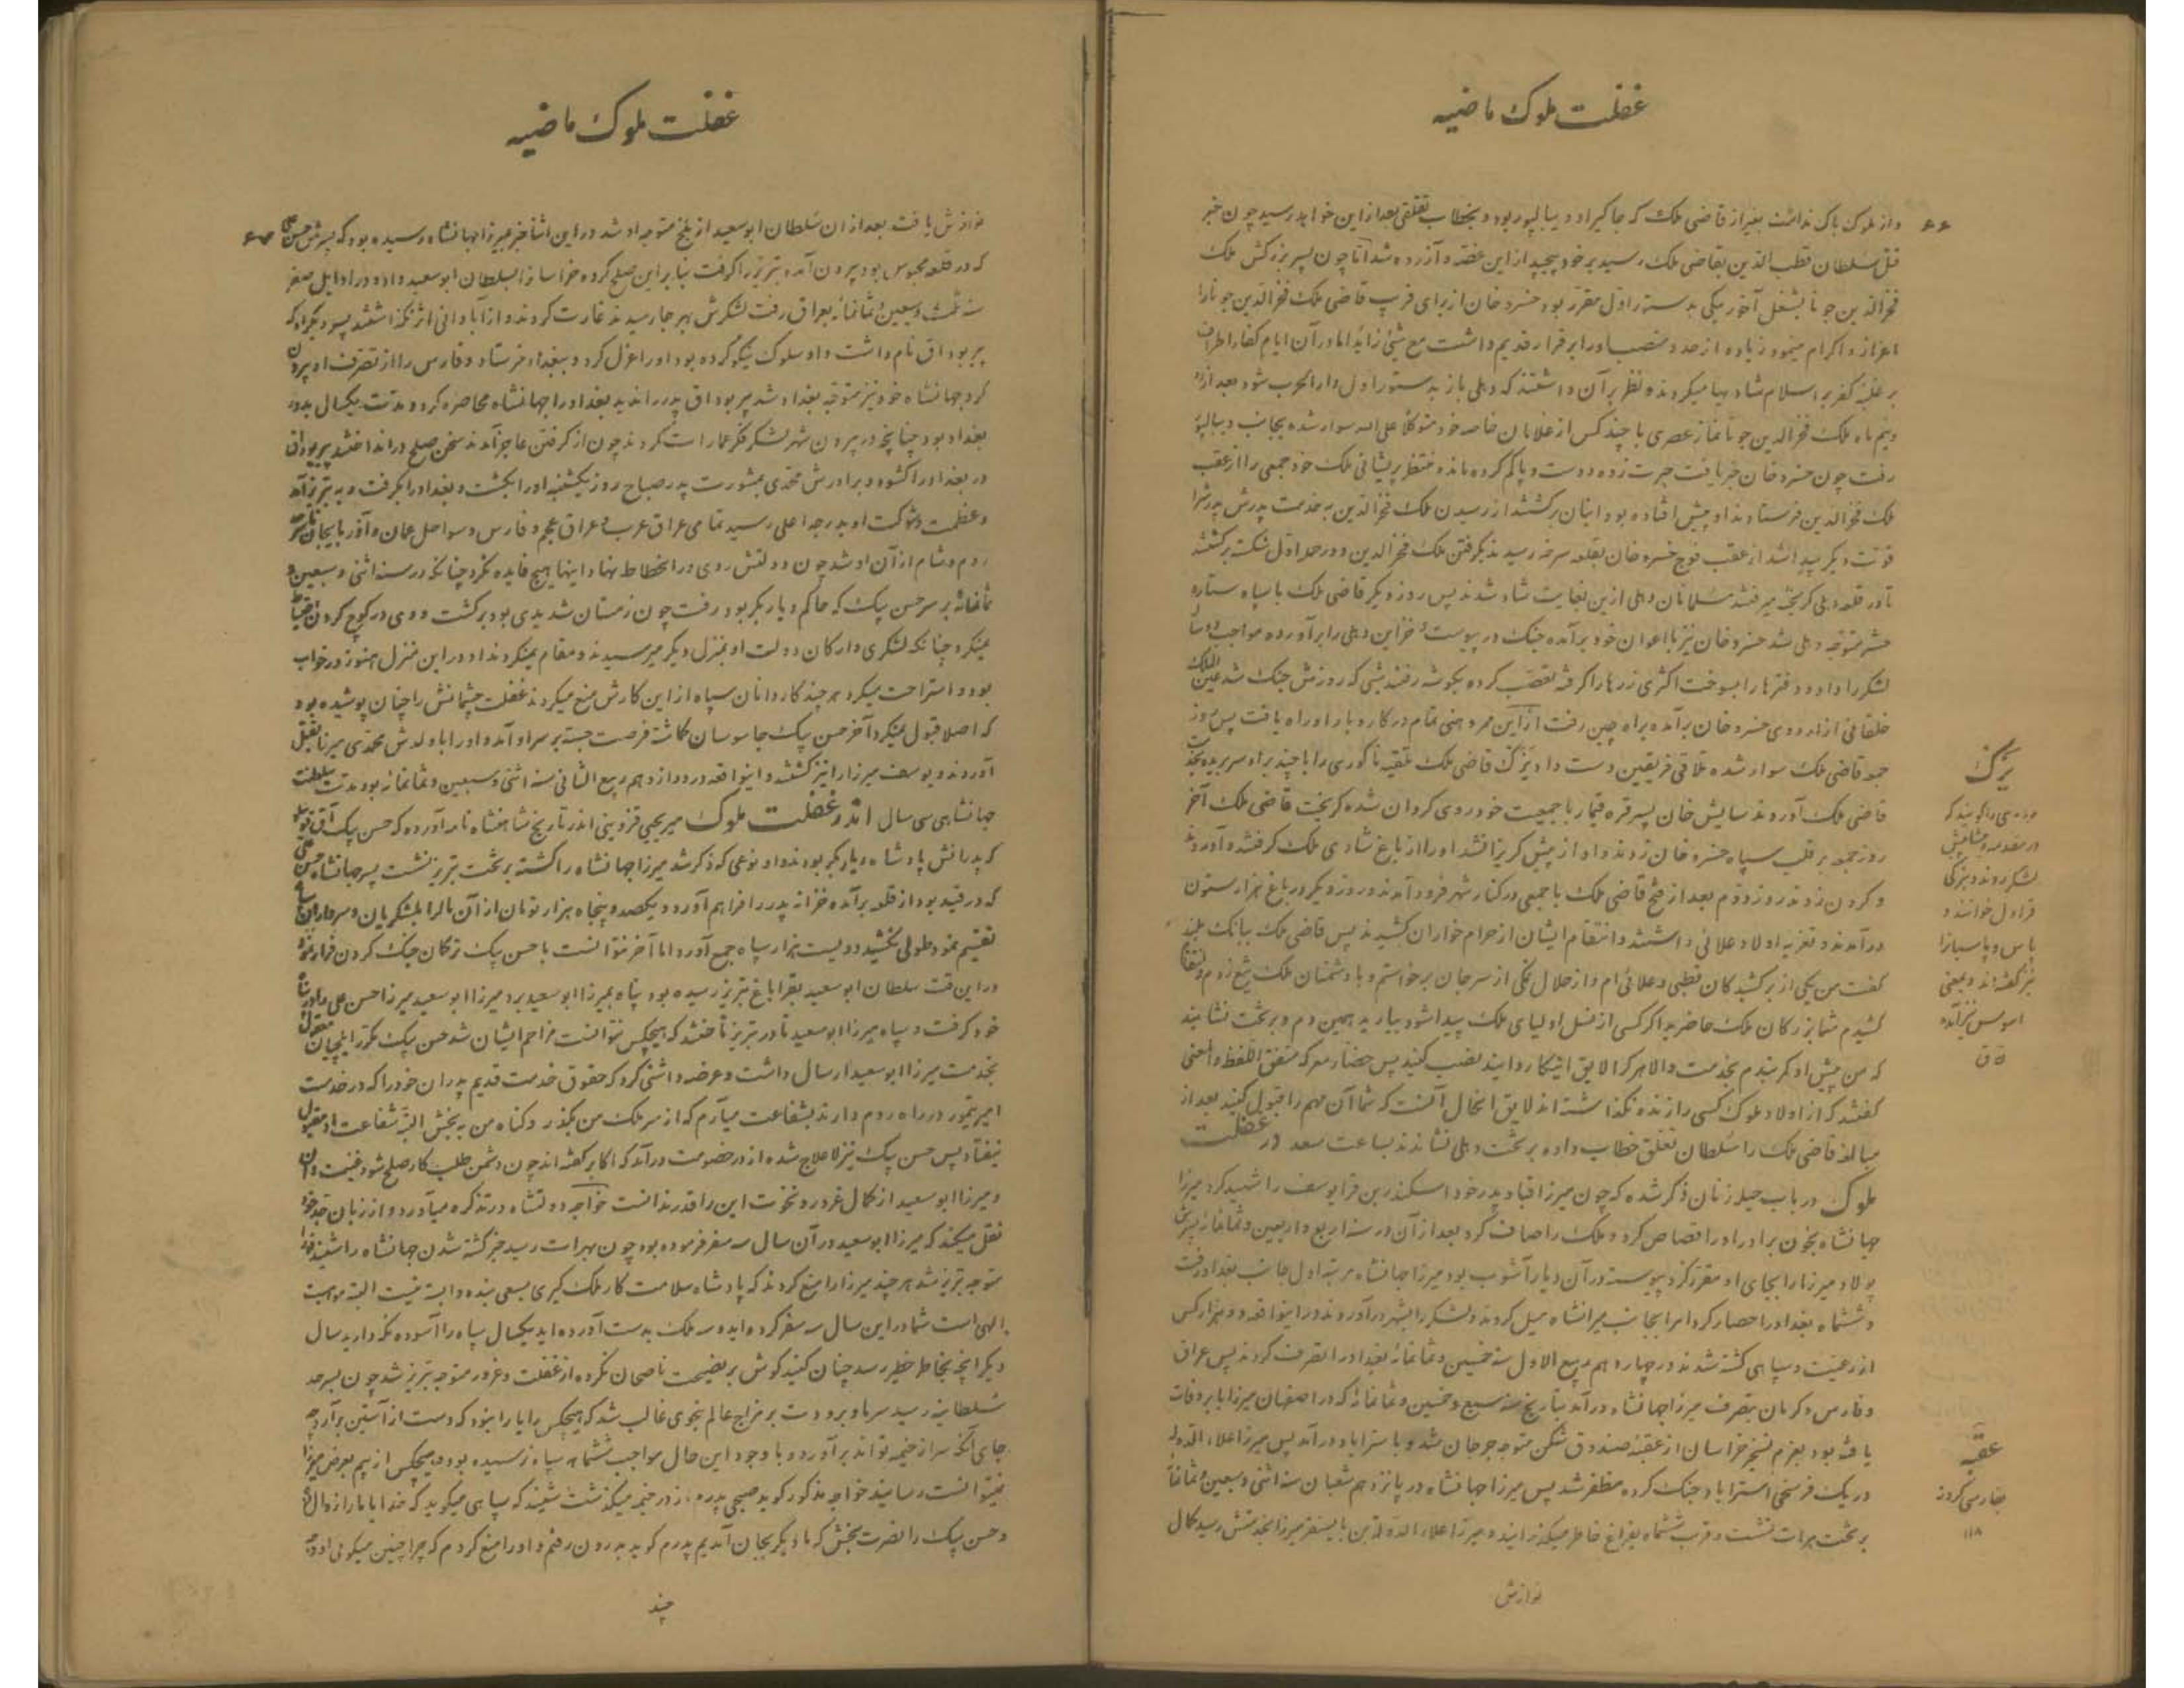 غفلت ملوک ماضیه
۶۶
و از ملوک باک نداشت بغیر از قاضی ملک که جاگیر او دیبالپور بود و بخطاب تغلقی بعد از این خواهد رسید چون خبر
قتل سلطان قطب الدین بقاضی ملک رسید بر خود پیچید از این غصه و آزرده شد اما چون پسر بزرگش ملک
فخرالدین جونا بشغل آخور بیکی بدستور اول مقرر بود خسرو خان از برای فریب قاضی ملک فخرالدین جونا را
اعزاز و اکرام مینمود زیاده از حد و منصب او را برقرار قدیم داشت مع شیئ زاید اما در آن ایام کفار اطراف
بر غلبه کفر بر اسلام شادیها میکردند و نظر بر آن داشتند که دهلی باز بدستور اول دارالحرب شود بعد از
و نیم ماه ملک فخرالدین جونا نماز عصری با چند کس از غلامان خاصه خود متوکلا علی الله سوار شده بجانب دیبالپور
رفت چون خسرو خان خبر یافت حیرت زده دست و پا گم کرده مانده منتظر پریشانی ملک خود جمعی را از عقب
ملک فخرالدین فرستاد و او پیش افتاده بود اینان برگشتند از رسیدن ملک فخرالدین به خدمت پدرش پدرش را
قوت دیگر پیدا شد از عقب فوج خسرو خان بقلعه سرمه رسیدند بگرفتن ملک فخرالدین و در حمله اول شکسته برگشتند
تا در قلعه دهلی گریخته میرفتند مسلمانان دهلی ازین بغایت شاد شدند پس روز دیگر قاضی ملک با سپاه ستاره
حشر متوجه دهلی شد خسرو خان نیز با اعوان خود برآمده جنگ در پیوست خزاین دهلی را برآورده مواجب دو ساله
لشکر را داد و دفترها را بسوخت اکثری زرها را گرفته تعصب کرده بگوشه رفتند شبی که روزش جنگ شد عین الملک
ملتانی از اردوی خسرو خان برآمده براه چین رفت از این ممر وهنی تمام در کاروبار او راه یافت پس روز
جمعه قاضی ملک سوار شده تلاقی فریقین دست داد یزک قاضی ملک تلقیه ناگوری را با چند برادر سر بریده پیش
قاضی ملک آوردند سایش خان پسر قره قیمار با جمعیت خود روی گردان شده گریخت قاضی ملک آخر
روز جمعه بر قلب سپاه خسرو خان زدند و او از پیش گریزان شد او را از باغ شادی ملک گرفتند و آوردند
و گردن زدند روز دوم بعد از فتح قاضی ملک با جمعی در کنار شهر فرود آمدند و روز دیگر در باغ هزار ستون
درآمدند و تعزیه اولاد علائی داشتند و انتقام ایشان از حرام خواران کشیدند پس قاضی ملک ببانک بلند
گفت من یکی از برکشیدگان قطبی و علائی ام و از حلال نمکی از سر جان برخواستم و با دشمنان ملک تیغ زدم و انتقام
کشیدم شما بزرگان ملک حاضرید اگر کسی از نسل اولیای ملک پیدا شود بیارید همین دم و بر تخت نشانید
که من پیش او کمر بندم بخدمت والا هر کرا لایق اینکار دانید نصب کنید پس حضار معرکه متفق اللفظ والمعنی
گفتند که از اولاد ملوک کسی را زنده نگذاشته اند لایق الحال آنست که شما آن مهم را قبول کنید بعد از
مبالغه قاضی ملک را سلطان تغلق خطاب داده بر تخت دهلی نشاندند بساعت سعد در غفلت
ملوک در باب حیله زنان ذکر شده که چون میرزا قباد پدر خود اسکندر بن قرا یوسف را شهید کرد میرزا
جهانشاه بخون برادر او را قصاص کرد و ملک را صاف کرد بعد از آن در سنه اربع و اربعین و ثمانمائه پسرش
پولاد میرزا را بجای او مقرر کرد پیوسته در آن دیار آشوب بود میرزا جهانشاه مرتبه اول جانب بغداد رفت
و ششماه بغداد را حصار کرد امرا بجانب میرانشاه میل کردند و لشکر را بشهر درآوردند و در اینواقعه دو هزار کس
از رعیت و سپاهی کشته شدند در چهاردهم ربیع الاول سنه خمسین و ثمانمائه بغداد را تصرف کردند پس عراق
و فارس و کرمان بتصرف میرزا جهانشاه درآمد بتاریخ سنه سبع و خمسین و ثمانمائه که در اصفهان میرزا بابر وفات
یافته بود بعزم تسخیر خراسان از عقبه صندوق شکن متوجه جرجان شد و باستراباد درآمد پس میرزا علاء الدوله
در یک فرسخی استراباد جنگ کرده مظفر شد پس میرزا جهانشاه در پانزدهم شعبان سنه اثنی و سبعین و ثمانمائه
بر تخت هرات نشست و قریب ششماه بفراغ خاطر میگذرانید و میرزا علاء الدوله بن بایسنقر میرزا بخدمتش رسید کمال
یزک
مردمی را گویند که
در مقدمه و پیشاپیش
لشکر روند و بترکی
قراول خوانند و
پاس و پاسبان را
نیز گفته اند و بمعنی
جاسوس نیز آمده
ق
عقبه
۱۱۸
نوازش
غفلت ملوک ماضیه
۶۷
نوازش یافت بعد از ان سلطان ابوسعید از بلخ متوجه او شد در این اثنا خبر بمیرزا جهانشاه رسیده بود که پسرش حسن علی
که در قلعه محبوس بود بیرون آمده تبریز را گرفت بنابر این صلح کرده خراسان را بسلطان ابوسعید داده در اوایل صفر
سنه ثلث و سبعین و ثمانمائه بعراق رفت لشکرش بهر جا رسیدند غارت کردند و از آبادانی اثر نگذاشتند پسر دیگر او که
پیر بوداق نام داشت و او سلوک نیکو کرده بود او را عزل کرد و ببغداد فرستاد و فارس را از تصرف او بیرون
کرد جهانشاه خود نیز متوجه بغداد شد پیر بوداق پدر را ندید بغداد را جهانشاه محاصره کرد و مدت یکسال بدور
بغداد بود چنانچه در بیرون شهر لشکر فکر عمارات کردند چون از گرفتن عاجز آمدند سخن صلح در انداختند پیر بوداق
در بغداد را گشوده برادرش محمدی بمشورت پدر صباح روز یکشنبه او را بکشت و بغداد را بگرفت و به تبریز آمد
و عظمت و شوکت او بدرجه اعلی رسید تمامی عراق عرب و عراق عجم و فارس و سواحل عمان و آذربایجان تا سرحد
روم و شام از آن او شد چون دولتش روی در انحطاط نهاد اینها هیچ فایده نکرد چنانکه در سنه اثنی و سبعین و
ثمانمائه بر سر حسن بیک که حاکم دیاربکر بود رفت چون زمستان شدیدی بود برگشت و وی در کوچ کردن احتیاط
نمیکرد چنانکه لشکری و ارکان دولت او بمنزل دیگر میرسیدند و مقام میکردند او در این منزل هنوز در خواب
بود و استراحت میکرد هر چند کاردانان سپاه از این کارش منع میکردند غفلت چشمانش را چنان پوشیده بود
که اصلا قبول نمیکرد آخر حسن بیک جاسوسان گماشته فرصت جسته بر سر او آمد و او را با ولدش محمدی میرزا بقتل
آوردند و یوسف میرزا را نیز کشتند و اینواقعه در دوازدهم ربیع الثانی سنه اثنی و سبعین و ثمانمائه بود مدت سلطنت
جهانشاهی سی سال اندر غفلت ملوک میر یحیی قزوینی اندر تاریخ شاهنشاه نامه آورده که حسن بیک آق قوینلو
که پدرانش پادشاه دیاربکر بودند و او نوعی که ذکر شد میرزا جهانشاه را کشته بر تخت تبریز نشست پسر جهانشاه حسن علی
که در قید بود از قلعه برآمده خزانه پدر را فراهم آورد و یکصد و پنجاه هزار تومان از آن مال را بلشکریان و سرداران سپاه
تقسیم نمود طولی نکشید دویست هزار سپاه جمع آورد اما آخر نتوانست با حسن بیک ترکمان جنگ کردن فرار نمود
در این وقت سلطان ابوسعید بقراباغ تبریز رسیده بود پناه بمیرزا ابوسعید برد میرزا ابوسعید میرزا حسن علی را در پناه
خود گرفت و سپاه میرزا ابوسعید تا در تبریز تاختند که هیچکس نتوانست مزاحم ایشان شد حسن بیک مکرر ایلچیان معقول
بخدمت میرزا ابوسعید ارسال داشت و عرضه داشتی کرد که حقوق خدمت قدیم پدران خود را که در خدمت
امیر تیمور در راه روم دارند بشفاعت میآرم که از سر ملک من بگذر و گناه من به بخش البته شفاعت او مقبول
نیفتاد پس حسن بیک نیز لاعلاج شده از در خصومت درآمد که اکابر گفته اند چون دشمن طلب کار صلح شود غنیمت دان
و میرزا ابوسعید از کمال غرور و نخوت این را قدر ندانست خواجه دولتشاه در تذکره میآورد و از زبان جد خود
نقل میکند که میرزا ابوسعید در آن سال سه سفر فرموده بود چون بهرات رسید خبر کشته شدن جهانشاه را شنید فورا
متوجه تبریز شد هر چند میرزا را منع کردند که پادشاه سلامت کار ملک گیری بسعی بنده وابسته نیست البته موهبت
الهی است شما در این سال سه سفر کرده اید و سه ملک بدست آورده اید یکسال سپاه را آسوده نگهدارید سال
دیگر آنچه بخاطر خطیر رسد چنان کنید گوش بر نصیحت ناصحان نکرده از غفلت و غرور متوجه تبریز شد چون بسرحد
سلطانیه رسید سرما و برودت بر مزاج عالم بنحوی غالب شد که هیچکس را یارا نبود که دست از آستین برآرد چه
جای آنکه سر از خیمه تواند برآورد و با وجود این حال مواجب ششماه سپاه نرسیده بود و هیچکس از بیم بعرض میرزا
نمیتوانست رسانید خواجه مذکور گوید صبحی پدرم از در خیمه میگذشت شنید که سپاهی میگوید که خدایا ما را زوال ده
و حسن بیک را نصرت بخش که ما دیگر بجان آمدیم پدرم گوید بدرون رفتم و او را منع کردم که چرا چنین میگوئی او
چند